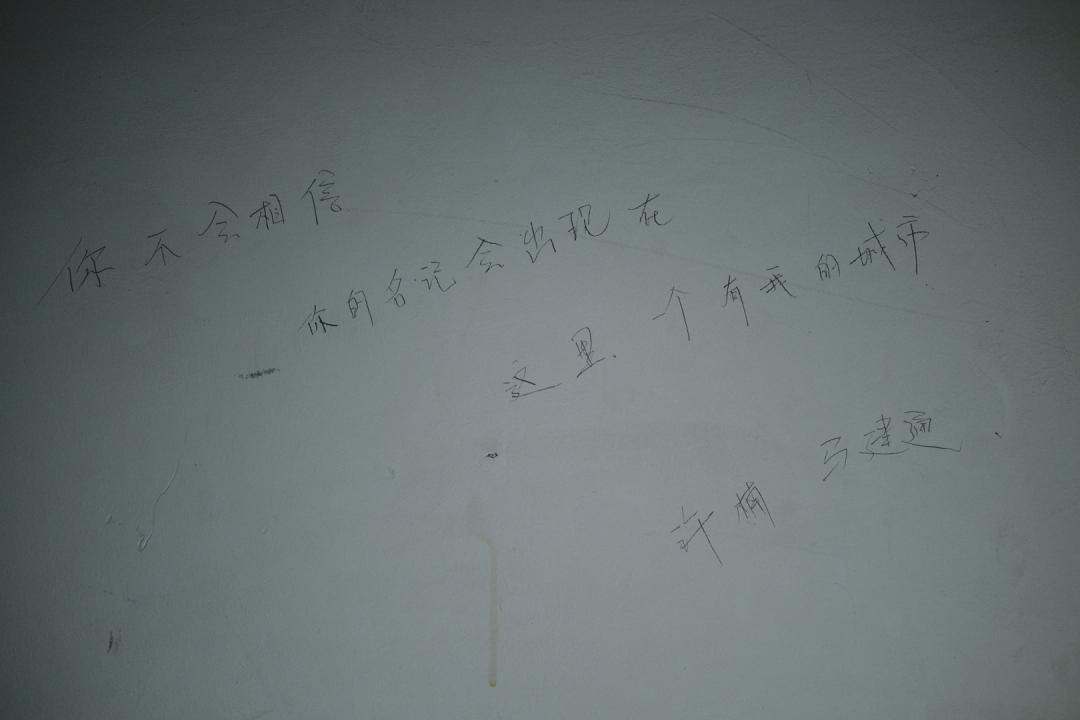 你不会相信
你的名记会出现在
这里.一个有我的城市
许楠 马建通.